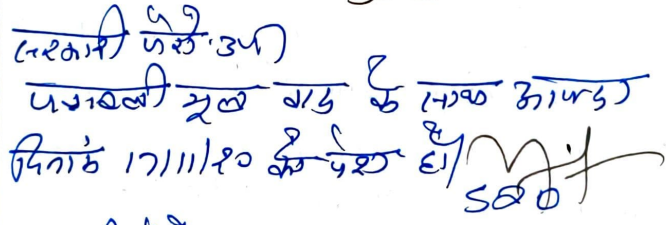 सरकारी पैरो. उप।
पत्रावली मूल वाद के साथ आइन्दा
दिनांक 17/11/20 को पेश हो।
SDO